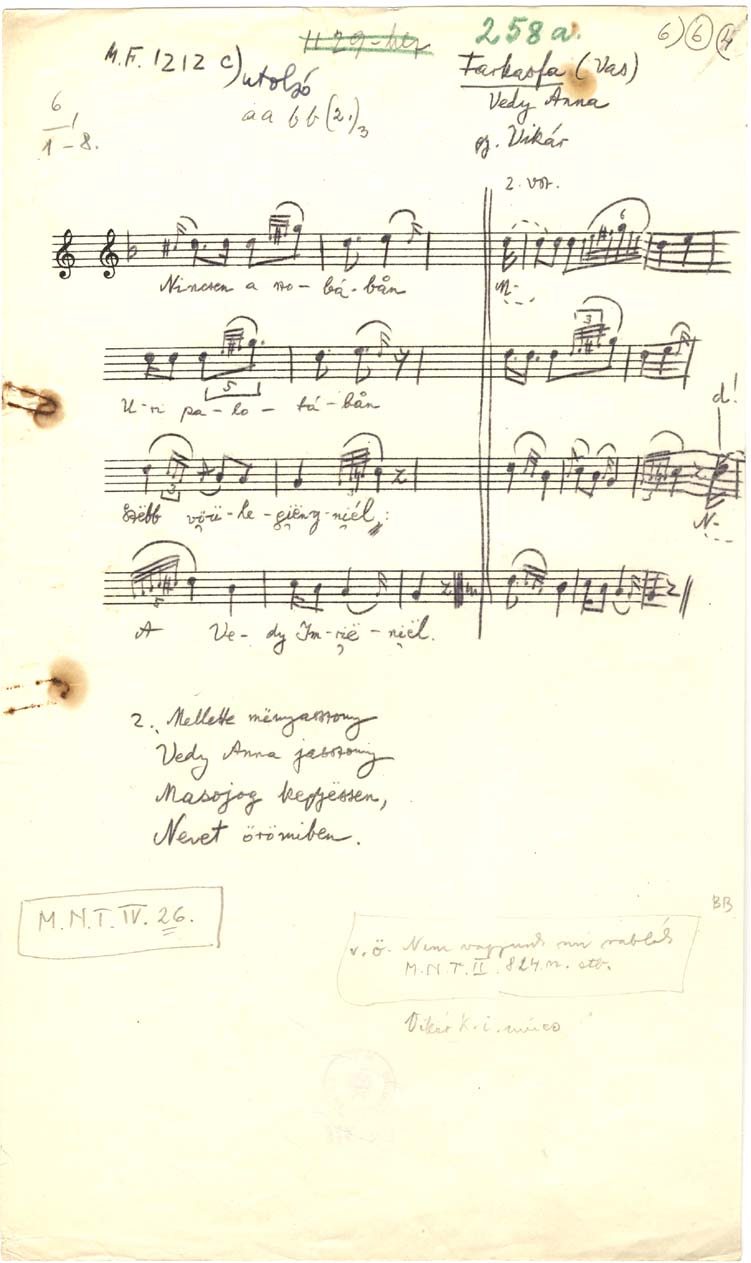 M.F. 1212 c) utolsó
258a.
6) 6 4
Farkasfa (Vas)
Vedy Anna
gy. Vikár
6
1-8.
aa bb (2.)3
2. vsz.
6
Nincsen a szo-bá-bån
N-
U-ri pa-lo-tá-bån
5
3
d!
3
3
N-
5
A Ve-dy Im-rië-niël.
2. Mellette mënyasszony
Vedy Anna jasszony
Masojog kepjëssen,
Nevet örömiben.
M.N.T. IV. 26.
BB
v.ö. Nem vagyunk mi rablók
M.N.T. II. 824.sz. stb.
Vikár K.